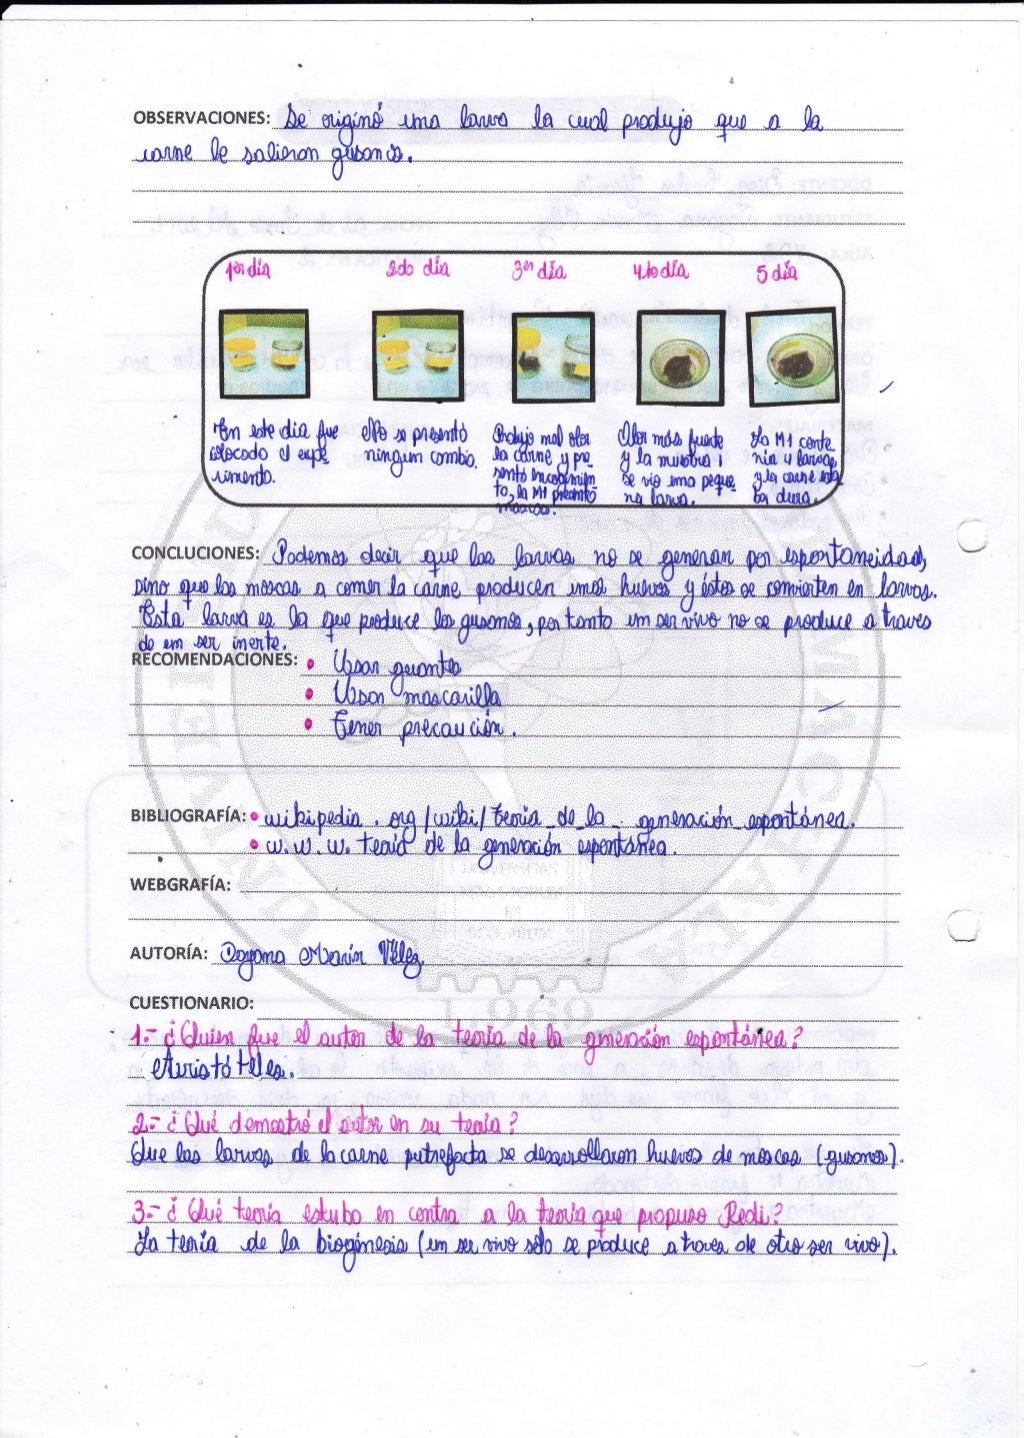 OBSERVACIONES: Se originó una larva la cual produjo que a la
carne le salieran gusanos.
1er día 2do día 3er día 4to día 5 día
En este día fue
colocado el expe
rimento.
No se presentó
ningun cambio.
Produjo mal olor
la carne y pre
sentó encogimien
to, la M1 presentó
moscas.
Olor más fuerte
y la muestra 1
se vio una peque
na larva.
La M1 conte
nia 4 larvas
y la carne esta
ba dura.
CONCLUCIONES: Podemos decir que las larvas no se generan por espontaneidad,
sino que las moscas a comer la carne producen unos huevos y éstos se convierten en larvas.
Esta larva es la que produce los gusanos, por tanto un ser vivo no se produce a traves
de un ser inerte.
RECOMENDACIONES: • Usar guantes
• Usar mascarilla
• Tener precaución.
BIBLIOGRAFÍA: • wikipedia.org/wiki/teoría_de_la_generación_espontánea.
• w.w.w. teoría de la generación espontánea.
WEBGRAFÍA:
AUTORÍA: Dayana Marin Vélez
CUESTIONARIO:
1.- ¿Quien fue el autor de la teoría de la generación espontánea?
Aristóteles.
2.- ¿Qué demostró el autor en su teoría?
Que las larvas de la carne putrefacta se desarrollaron huevos de moscas (gusanos).
3.- ¿Qué teoría estubo en contra a la teoría que propuso Redi?
La teoría de la biogénesis (un ser vivo sólo se produce a traves de otro ser vivo).
1969